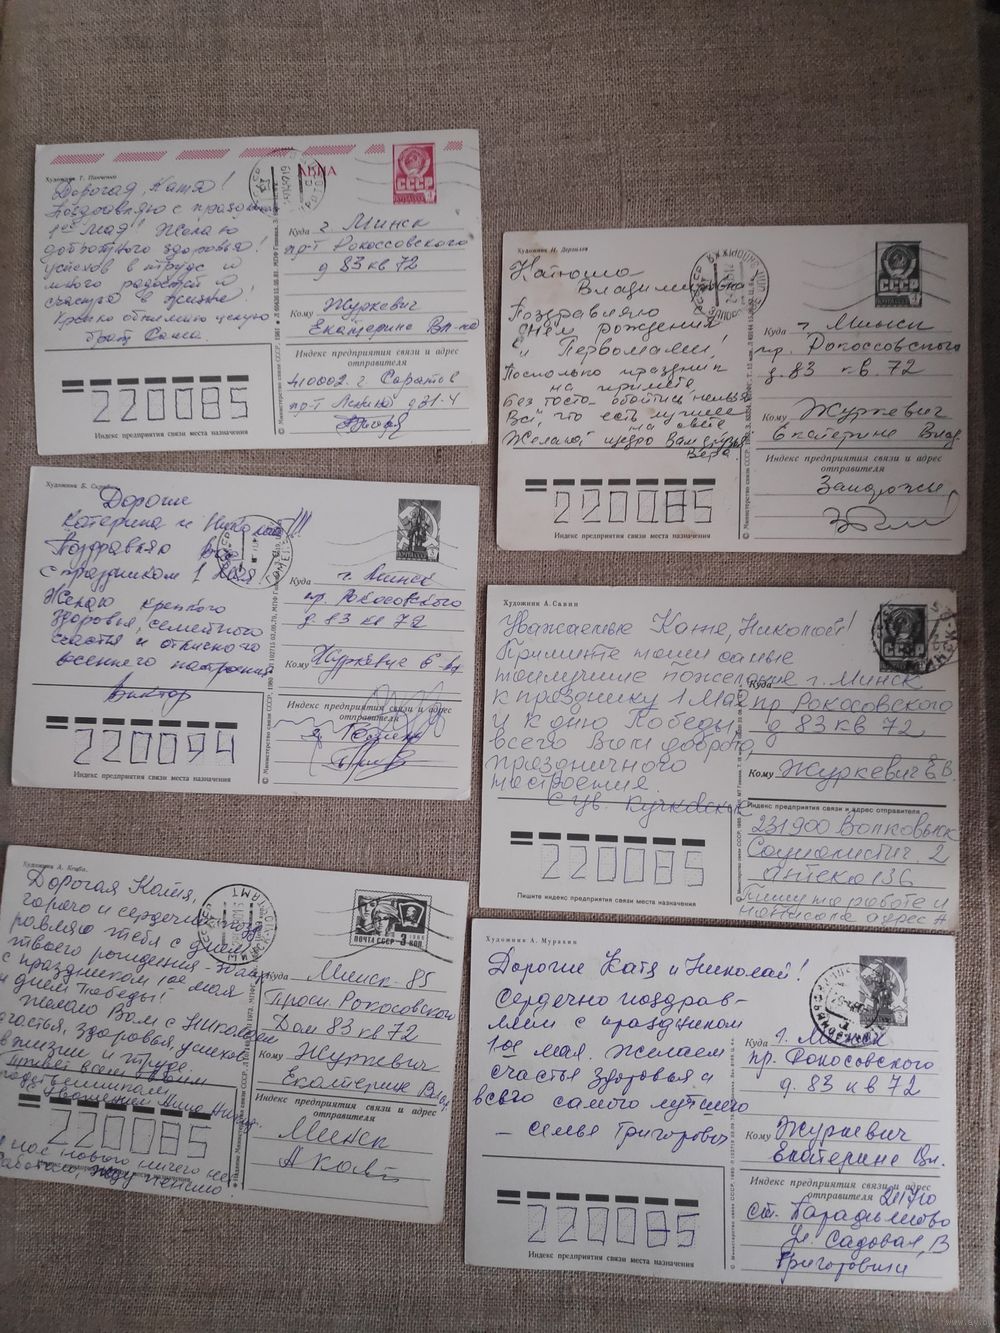 Художник Т. Панченко
АВИА
СССР
Дорогая Катя!
Поздравляю с праздн
1ое Мая! Желаю
доброго здоровья!
успехов в труде и
много радости и
счастья в жизни!
Крепко обнимаю целую
брат Саша.
Куда г Минск
пр-т Рокоссовского
д 83 кв 72
Кому Журкевич
Екатерине Вл-не
Индекс предприятия связи и адрес
отправителя
410002 г Саратов
пр-т Ленина д 31-4
220085
Индекс предприятия связи места назначения
Художник Н. Дергилев
СССР
Катюша
Владимировна
Поздравляю
Днем рождения
и Первомаем!
Поскольку праздник
на примете
Без тоста обойтись нельзя
Всё, что есть лучшее
на свете
Желаю щедро Вам друзья
Вера
Куда г. Минск
пр. Рокоссовского
д. 83 кв. 72
Кому Журкевич
Екатерине Влад.
Индекс предприятия связи и адрес
отправителя
Запорожье
220085
Индекс предприятия связи места назначения
Художник Б.
Дорогие
Катерина и Николай!!!
Поздравляю Вас
с праздником 1 Мая
Желаю крепкого
здоровья, семейного
счастья и отличного
весеннего настроения
Виктор
Куда г. Минск
пр. Рокосовского
д. 83 кв 72
Кому Журкевич Е. Вл
Индекс предприятия связи и адрес
отправителя
220094
Индекс предприятия связи места назначения
Художник А. Савин
СССР
Уважаемые Катя, Николай!
Примите наши самые
наилучшие пожелания
к празднику 1 Мая
и к дню Победы
всего Вам доброго
праздничного
настроения.
С ув. Кучковские
Куда г. Минск
пр Рокосовского
д 83 кв 72
Кому Журкевич Е.В.
Индекс предприятия связи и адрес отправителя
231900 Волковыск
Социалистич. 2
аптека 136
Пишу на работе и
написала адрес А
220085
Пишите индекс предприятия связи места назначения
Художник А.
ПОЧТА СССР 3 КОП
Дорогая Катя,
горячо и сердечно позд
равляю тебя с днем
твоего рождения
с праздником 1ое мая
и днем Победы!
Желаю Вам с Николаем
счастья, здоровья, успехов
в жизни и труде.
Привет всем твоим
родственникам
у нас нового ничего нет
Работаю, жду пенсию.
Куда Минск-85
Просп. Рокосовского
Дом 83 кв 72
Кому Журкевич
Екатерине Влад.
Индекс предприятия связи и адрес
отправителя
Минск
220085
Художник А. Мурахин
Дорогие Катя и Николай!
Сердечно поздрав-
ляем с праздником
1ое мая. Желаем
счастья здоровья и
всего самого лучшего
- семья Григорович
Куда г. Минск
пр. Рокосовского
д. 83 кв 72
Кому Журкевич
Екатерине Вл.
Индекс предприятия связи и адрес
отправителя
ст. Парадьшово
ул. Садовая,
Григоровичи
220085
Индекс предприятия связи места назначения